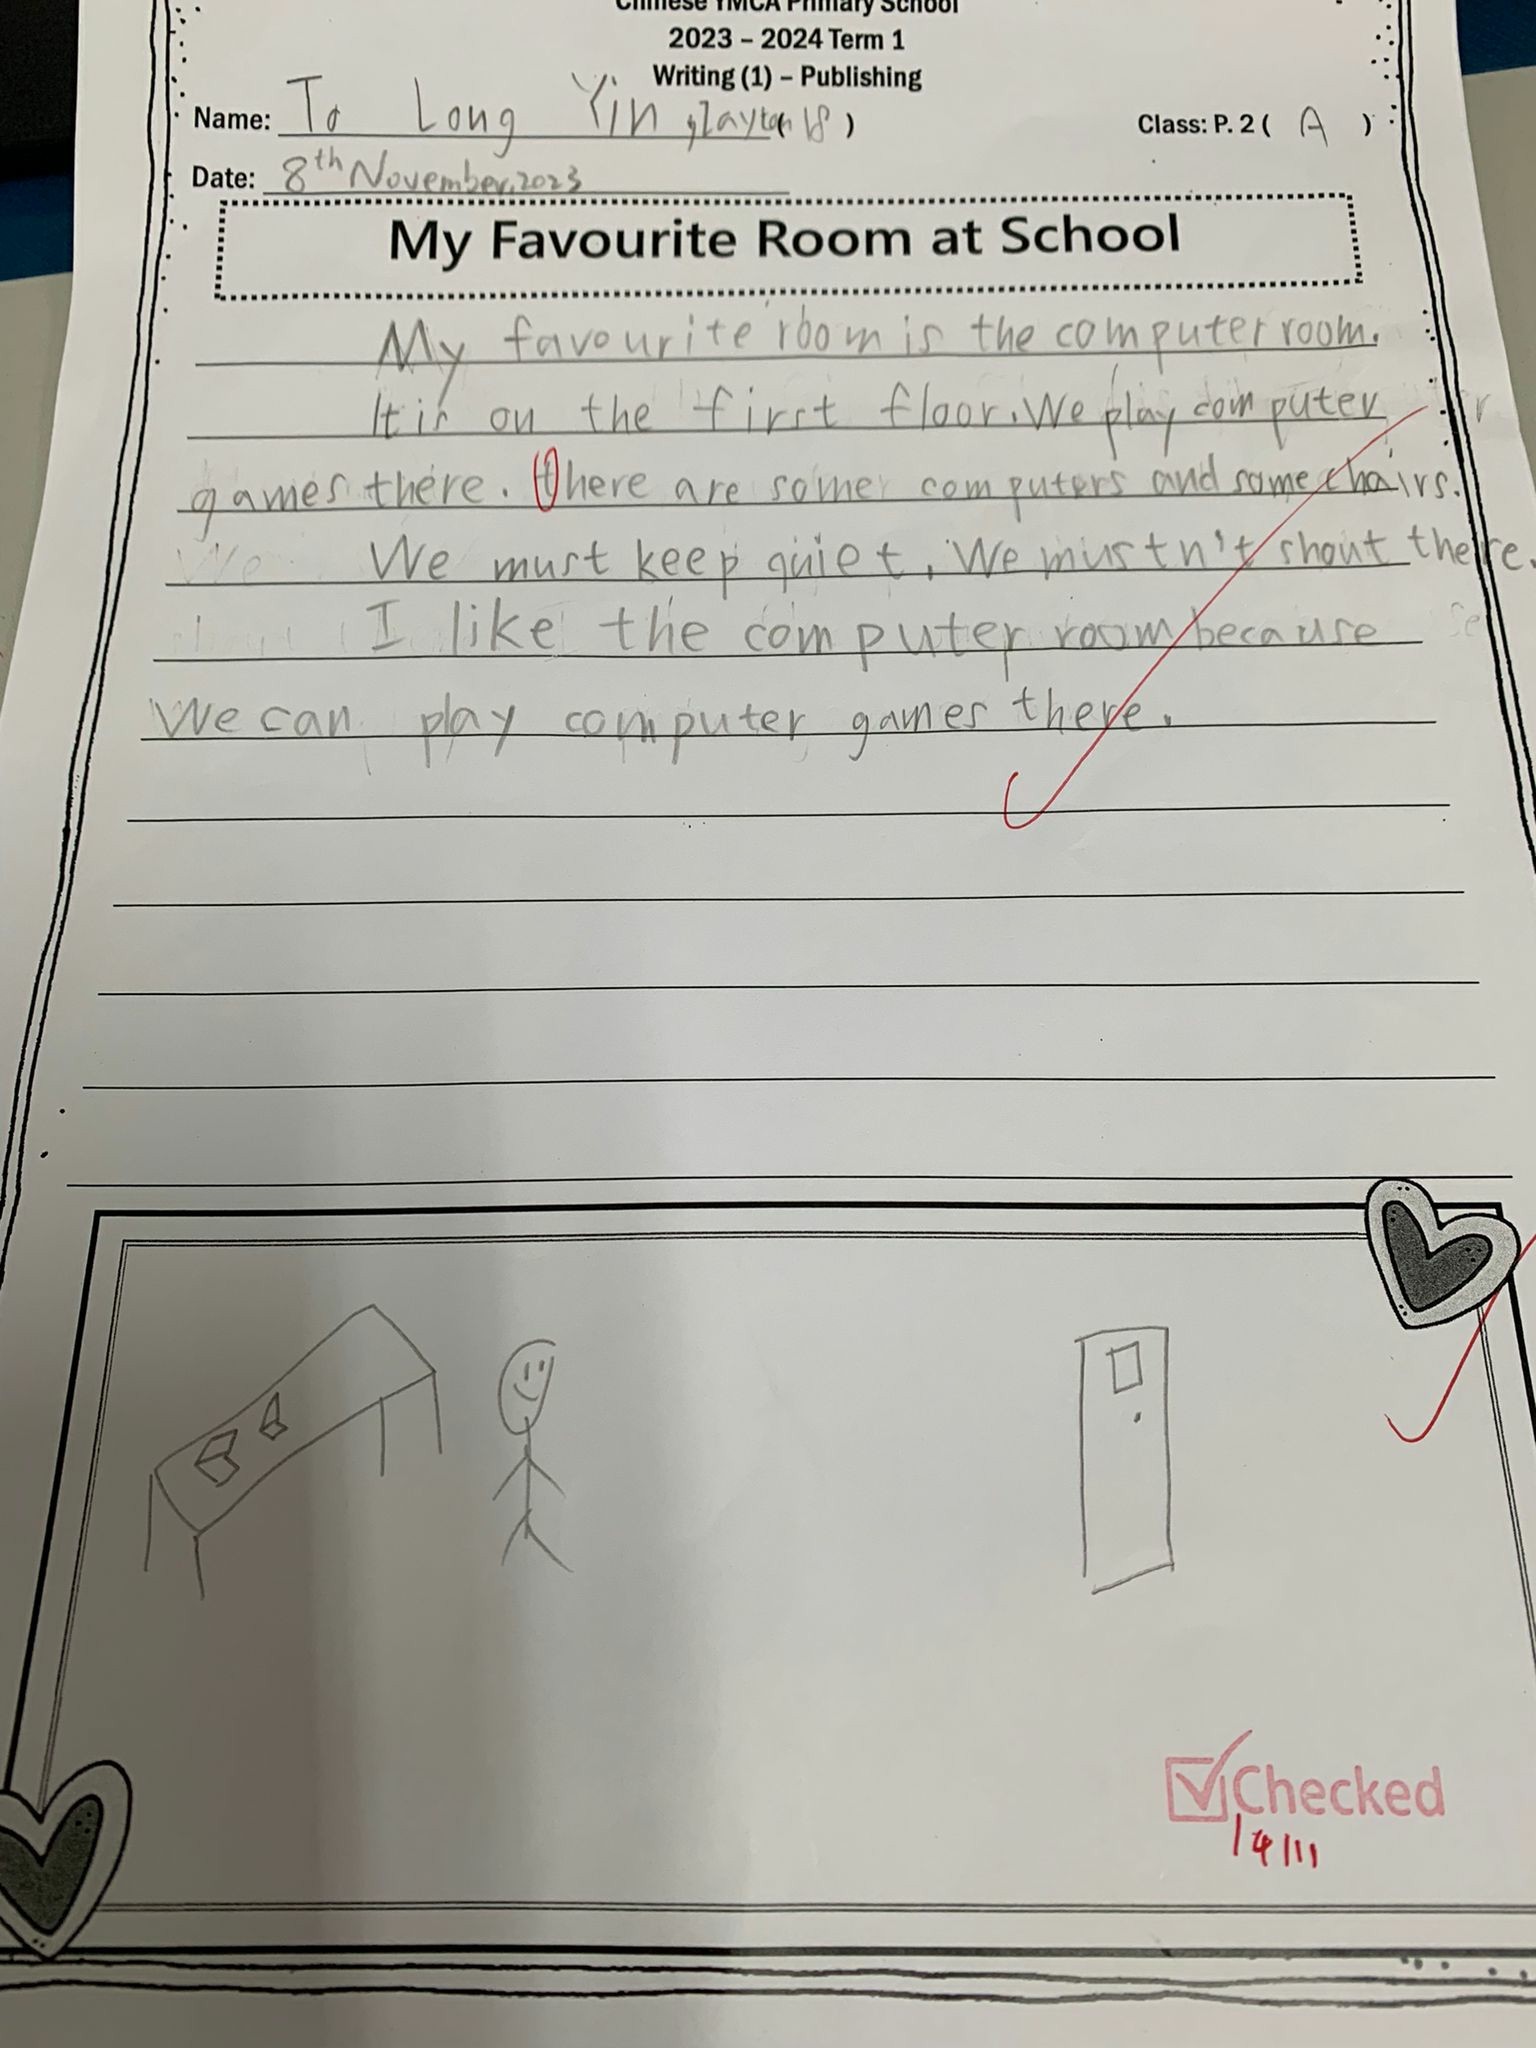 Chinese YMCA Primary School
2023 – 2024 Term 1
Writing (1) – Publishing
Name: To Long Yin, (18)
Class: P. 2 ( A )
Date: 8th November, 2023
My Favourite Room at School
My favourite room is the computer room.
It is on the first floor. We play computer
games there. there are some computers and some chairs.
We must keep quiet. We mustn't shout there.
I like the computer room because
We can play computer games there.
Checked
14/11